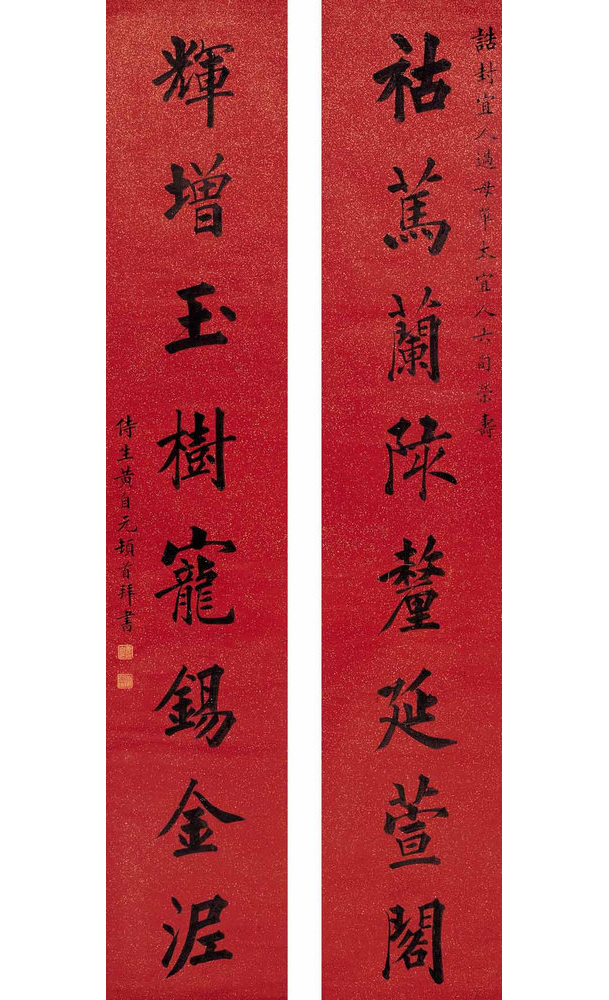 誥封宜人過母太宜人六旬榮壽
祜篤蘭陔釐延萱閣
輝增玉樹寵錫金泥
侍生黃自元頓首拜書